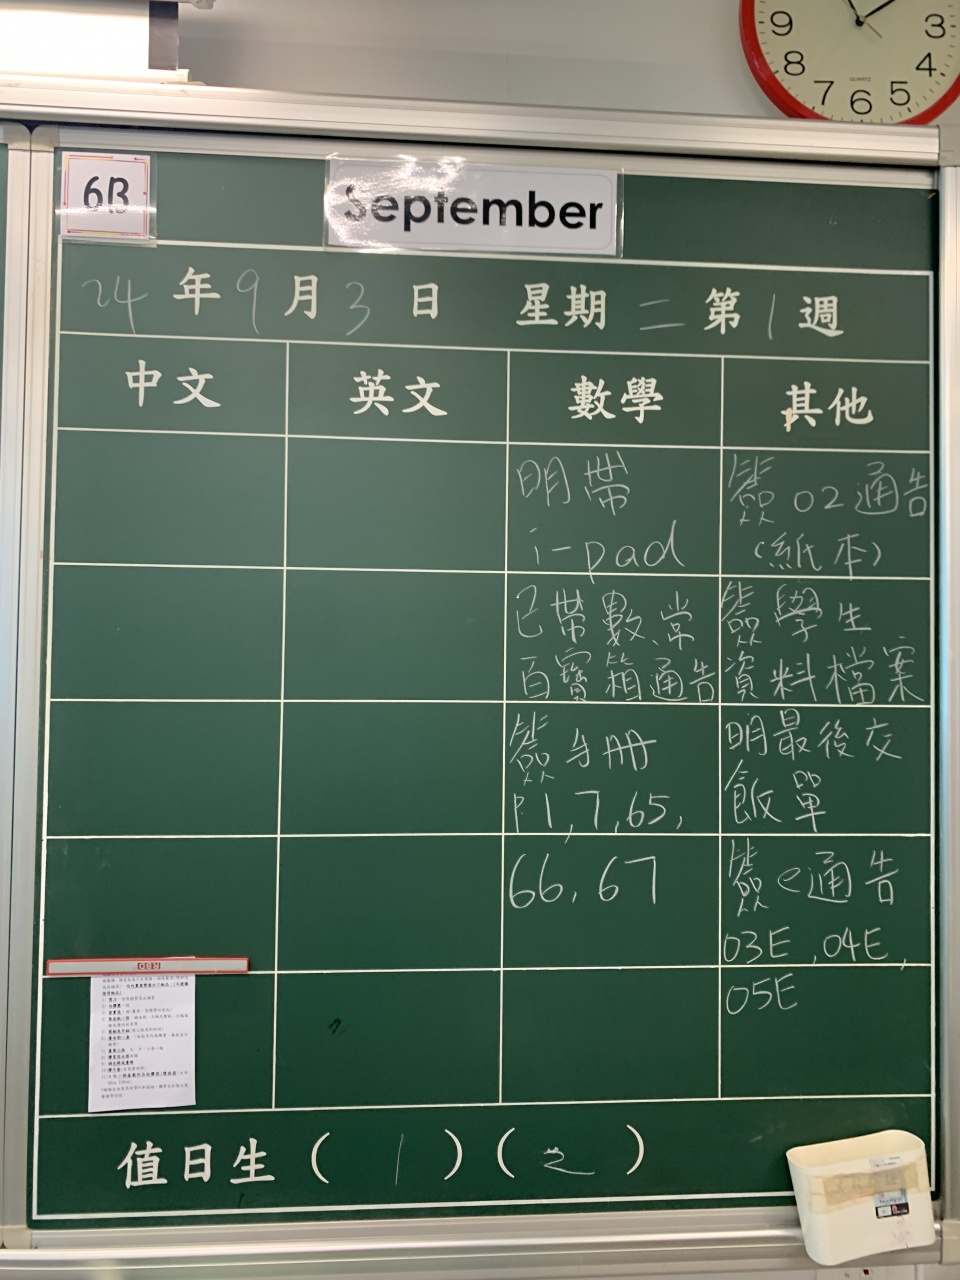 9
3
8
4
7
6
5
QUARTZ
6B
September
24年9月3日 星期二第1週
中文 英文 數學 其他
明帶
i-pad
已帶數、常
百寶箱通告
簽手冊
P1,7,65,
66,67
簽02通告
(紙本)
簽學生
資料檔案
明最後交
飯單
簽e通告
03E,04E,
05E
值日生(1)(2)